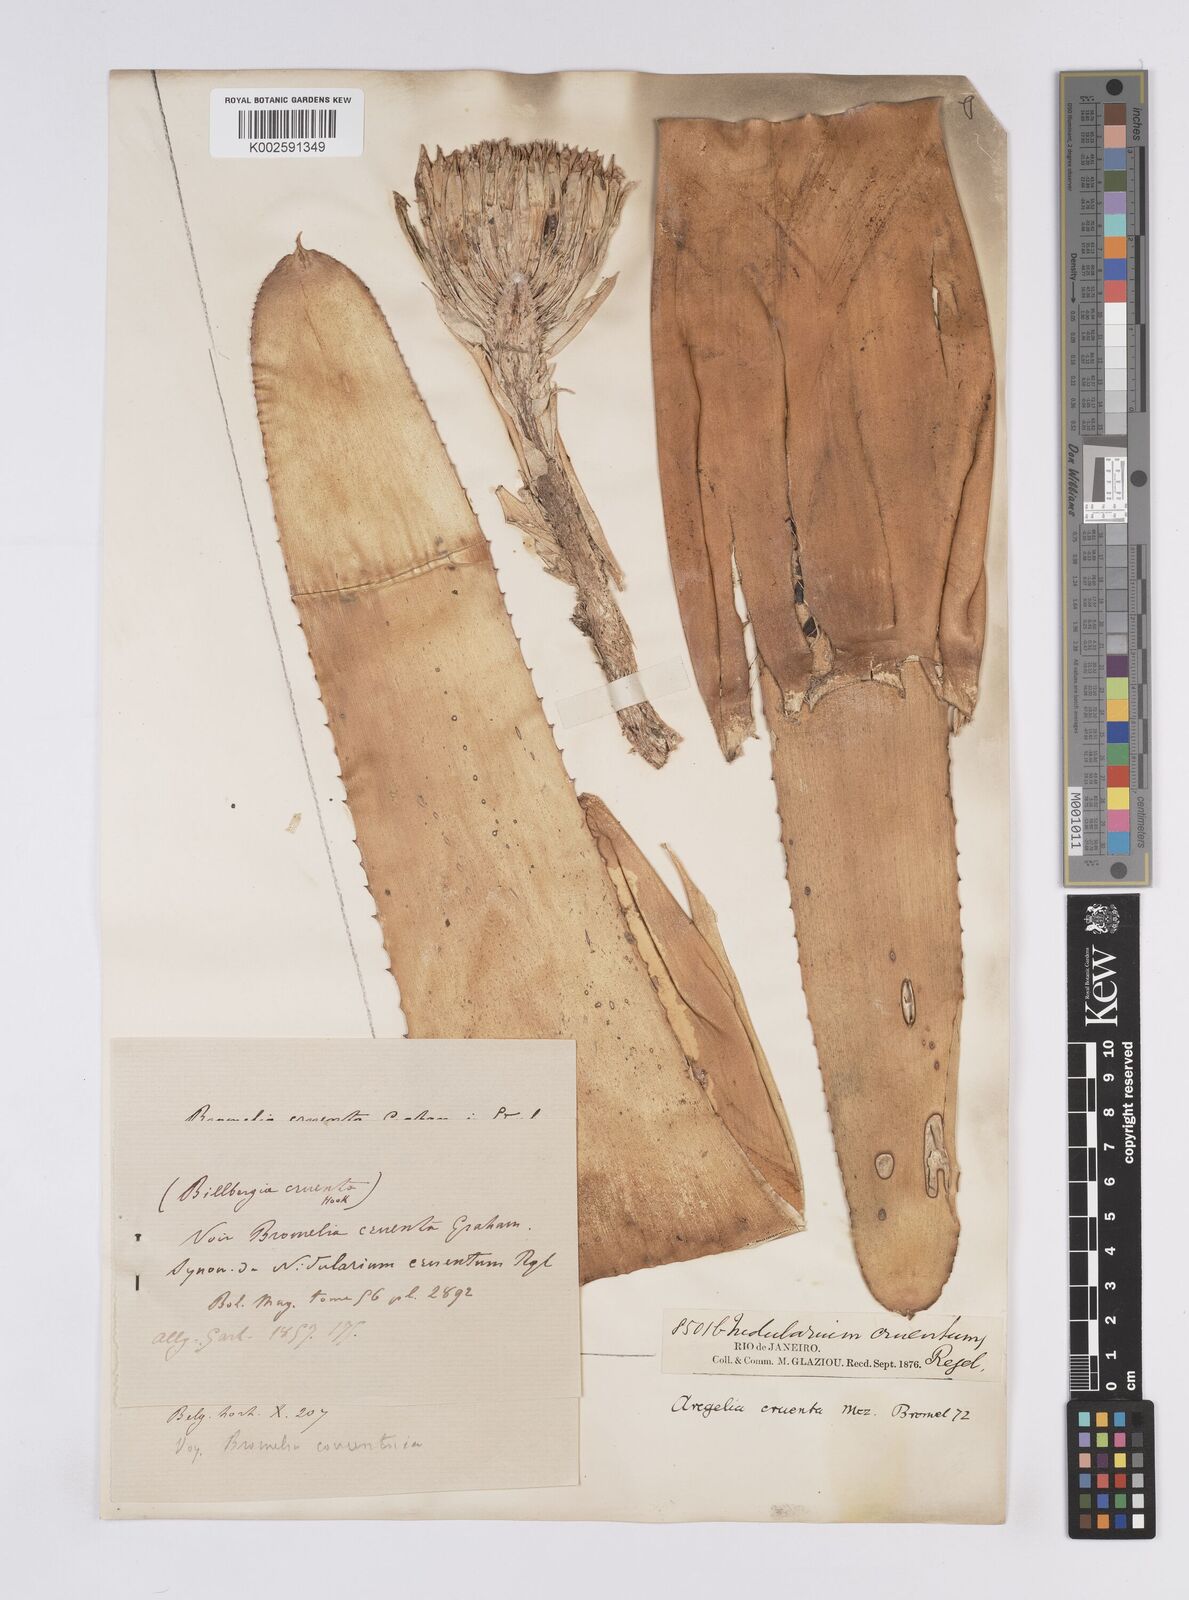 ROYAL BOTANIC GARDENS KEW
K002591349
inches
centimetres
Density
Don Williams
M001011
Kew
Royal Botanic Gardens
0 1 2 3 4 5 6 7 8 9 10
copyright reserved
Bromelia cruenta
(Billbergia cruenta)
Hook
Voir Bromelia cruenta Graham.
Synon. de Nidularium cruentum Rgl
Bot. Mag. tome 56 pl. 2892
Allg. Gart. 1857.
Belg. hort. X. 207
Voy. Bromelia
8501b Nidularium cruentum,
RIO de JANEIRO.
Coll. & Comm. M. GLAZIOU. Recd. Sept. 1876. Regel.
Aregelia cruenta Mez. Bromel 72